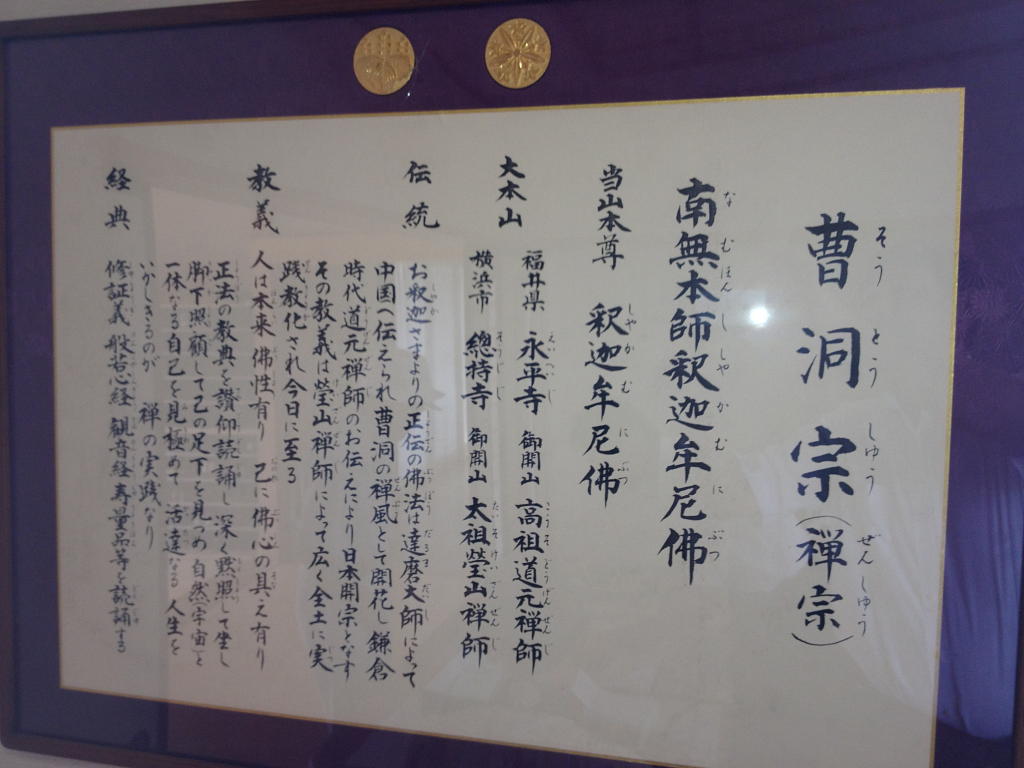 曹洞宗(禅宗)
南無本師釈迦牟尼佛
当山本尊 釈迦牟尼佛
大本山 福井県 永平寺 御開山 高祖道元禅師
横浜市 總持寺 御開山 太祖瑩山禅師
伝統 お釈迦さまよりの正伝の佛法は達磨大師によって
中国へ伝えられ曹洞の禅風として開花し鎌倉
時代道元禅師のお伝えにより日本開宗となす
その教義は瑩山禅師によって広く全土に実
践教化され今日に至る
教義 人は本来佛性有り 己に佛心の具え有り
正法の教典を讃仰読誦し深く黙照して坐し
脚下照顧して己の足下を見つめ自然(宇宙)と
一体なる自己を見極めて 活達なる人生を
いかしきるのが 禅の実践なり
経典 修証義 般若心経 観音経 寿量品等を読誦する